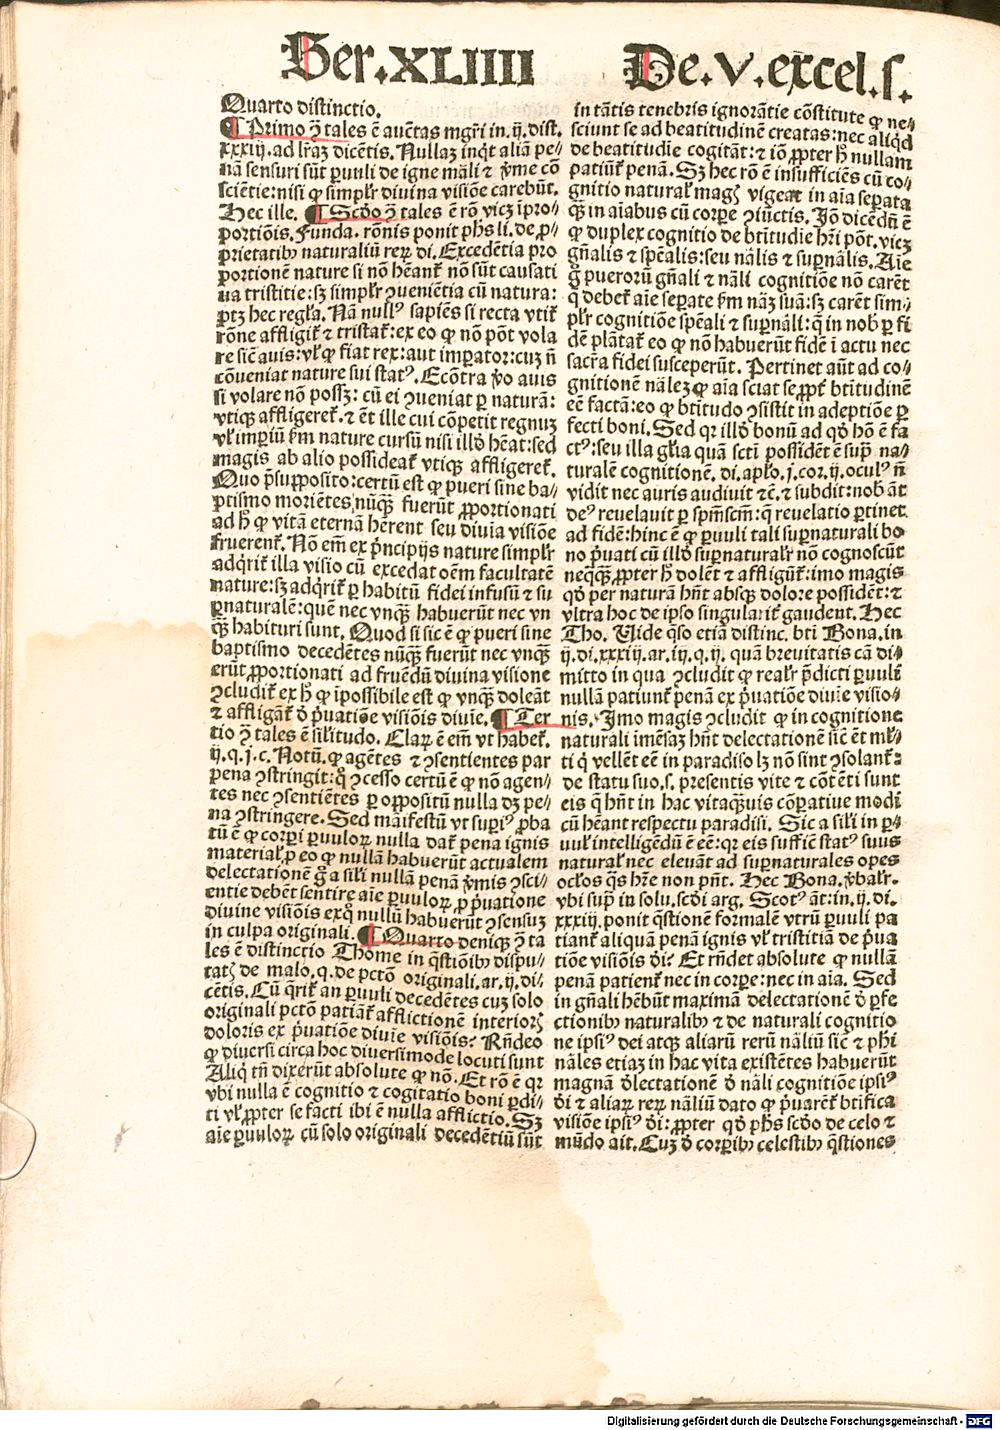 Ser. XLIIII De. V. excel. s.
Quarto distinctio.
¶ Primo ꝯ tales ē auc̄tas mgr̄i in. ij. dist.
xxxij. ad lr̄aꝫ dicētis. Nullaꝫ inqͥt aliā pe⸗
nā sensuri sūt ꝑuuli de igne māli ⁊ v̓me cō
sciētie: nisi ꝙ simpl̓r diuina visiōe carebūt.
Hec ille. ¶ Scd̓o ꝯ tales ē rō vicꝫ īpro⸗
portiōis. Funda. rōnis ponit ph̓s li. de ꝓ⸗
prietatibꝰ naturaliū reꝝ di. Excedētia pro
portionē nature si nō hēant̉ nō sūt causati
ua tristitie: sꝫ simpl̓r ꝯueniētia cū natura:
ptꝫ hec regl̓a. Nā nullꝰ sapiēs si recta vtit̉
rōne affligit̉ ⁊ tristat̉: ex eo ꝙ nō pōt vola
re sic̄ auis: vl̓ ꝙ fiat rex: aut imperator: cuꝫ n̄
cōueniat nature sui statꝰ. Ecōtra v̓o auis
si volare nō possꝫ: cū ei ꝯueniat ꝑ naturā:
vtiqꝫ affligeret̉. ⁊ ēt ille cui cōpetit regnuꝫ
vl̓ imperiū s̓m nature cursū nisi illd̓ hēat: sed
magis ab alio possideat̉ vtiqꝫ affligeret̉.
Quo p̄supposito: certū est ꝙ pueri sine ba⸗
ptismo moriētes nūqꝫ̄ fuerūt ꝓportionati
ad h̓ ꝙ vitā eternā hērent seu diuia visiōe
fruerent̉. Nō em̄ ex p̓ncipijs nature simpl̓r
adqͥrit̉ illa visio cū excedat oēm facultatē
nature: sꝫ adqͥrit̉ ꝑ habitū fidei infusū ⁊ su
ꝑnaturalē: quē nec vnqꝫ̄ habuerūt nec vn
qꝫ̄ habituri sunt. Quod si sic ē ꝙ pueri sine
baptismo decedētes nūqꝫ̄ fuerūt nec vnqꝫ̄
erūt ꝓportionati ad fruēdū diuina visione
ꝯcludit̉ ex h̓ ꝙ īpossibile est ꝙ vnqꝫ̄ doleāt
⁊ affligāt̉ d̓ p̓uatiōe visiōis diuīe. ¶ Ter
tio ꝯ tales ē sil̓itudo. Claꝝ ē em̄ vt habet̉.
ij. q. j. c. Notū. ꝙ agētes ⁊ ꝯsentientes par
pena ꝯstringit: qͣ ꝯcesso certū ē ꝙ nō agen⸗
tes nec ꝯsentiētes ꝑ oppositū nulla dꝫ pe⸗
na ꝯstringere. Sed māifestū vt supiꝰ ꝓba
tū ē ꝙ corpi ꝑuuloꝝ nulla dat̉ pena ignis
material̓. ꝑ eo ꝙ nullā habuerūt actualem
delectationē g̓ a sil̓i nullā penā v̓mis ꝯsci⸗
entie debēt sentire aīe ꝑuuloꝝ ꝓ p̓uatione
diuine visiōis exqͦ nullū habuerūt ꝯsensuꝫ
in culpa originali. ¶ Quarto deniqꝫ ꝯ ta
les ē distinctio Thome in q̄stiōibꝰ dispu⸗
tatꝭ de malo. q. de pctō originali. ar. ij. di⸗
cētis. Cū q̄rit̉ an ꝑuuli decedētes cuꝫ solo
originali pctō patiāt̉ afflictionē interiorꝭ
doloris ex p̓uatiōe diuīe visiōis? Rn̄deo
ꝙ diuersi circa hoc diuersimode locuti sunt
Aliqͥ tn̄ dixerūt absolute ꝙ nō. Et rō ē qꝛ
vbi nulla ē cognitio ⁊ cogitatio boni ꝑdi⸗
ti vl̓ ꝓpter se facti ibi ē nulla afflictio. Sꝫ
aīe ꝑuuloꝝ cū solo originali decedētiū sūt
in tātis tenebris ignorātie cōstitute ꝙ ne⸗
sciunt se ad beatitudinē creatas: nec aliqͥd
de beatitudīe cogitāt: ⁊ iō ꝓpter h̓ nullam
patiūt̉ penā. Sꝫ hec rō ē insufficiēs cū co⸗
gnitio natural̓ magꝭ vigeat in aīa seperata
qꝫ̄ in aīabus cū corpe ꝯiūctis. Jō dicēdū ē
ꝙ duplex cognitio de btitudīe hr̄i pōt. vicꝫ
gn̄alis ⁊ spēalis: seu nālis ⁊ suꝑnālis. Aīe
g̓ puerorū gn̄ali ⁊ nāli cognitiōe nō carēt
q̄ debet̉ aīe seperate s̓m nāꝫ suā: sꝫ carēt sim⸗
pl̓r cognitiōe spēali ⁊ suꝑnāli: q̄ in nobꝭ ꝑ fi
dē plātat̉ eo ꝙ nō habuerūt fidē ī actu nec
sacr̄a fidei susceperūt. Pertinet aūt ad co⸗
gnitionē nāleꝫ ꝙ aīa sciat se ꝓpt̓ btitudinē
eē factā: eo ꝙ btitudo ꝯsistit in adeptiōe ꝑ
fecti boni. Sed qꝛ illd̓ bonū ad qd̓ hō ē fa
ctꝰ: seu illa gl̓ia quā scti possidēt ē supͣ na⸗
turalē cognitionē. di. apl̓o. j. cor. ij. oculꝰ n̄
vidit nec auris audiuit ⁊c̄. ⁊ subdit: nobꝭ āt
deꝰ reuelauit ꝑ spm̄scm̄: q̄ reuelatio ꝑtinet
ad fidē: hinc ē ꝙ ꝑuuli tali suꝑnaturali bo
no p̓uati cū illd̓ suꝑnatural̓r nō cognoscūt
neqꝫqꝫ̄ ꝓpter h̓ dolēt ⁊ affligūt̉: imo magis
qd̓ per naturā hn̄t absqꝫ dolore possidēt: ⁊
vltra hoc de ipso singularit̓ gaudent. Hec
Tho. Vide q̄so etiā distinc. bti Bona. in
ij. di. xxxiij. ar. iij. q. ij. quā breuitatis cā di⸗
mitto in qua ꝯcludit ꝙ real̓r p̓dicti ꝑuuli
nullā patiunt̉ penā ex p̓uatiōe diuīe visio⸗
nis. Jmo magis ꝯcludit ꝙ in cognitione
naturali imēsaꝫ hn̄t delectationē sic̄ ēt ml̓⸗
ti qͥ vellēt eē in paradiso lꝫ nō sint ꝯsolant̉:
de statu suo. s. presentis vite ⁊ cōtēti sunt
eis q̄ hn̄t in hac vita qꝫ̄uis cōparatiue modi
cū hēant respectu paradisi. Sic a sil̓i in ꝑ⸗
uul̓ intelligēdū ē eē: qꝛ eis suffic̄ statꝰ suus
natural̓ nec eleuāt ad suꝑnaturales opes
ocl̓os q̄s hr̄e non pn̄t. Hec Bona. v̓bal̓r.
vbi supͣ in solu. scd̓i arg. Scotꝰ āt: in. ij. di.
xxxiij. ponit q̄stionē formalē vtrū ꝑuuli pa
tiant̉ aliquā penā ignis vl̓ tristitiā de p̓ua
tiōe visiōis d̓i? Et rn̄det absolute ꝙ nullā
penā patient̉ nec in corpe: nec in aīa. Sed
in gn̄ali hēbūt maximā delectationē d̓ ꝑfe
ctionibꝰ naturalibꝰ ⁊ de naturali cognitio
ne ipsiꝰ dei atqꝫ aliarū rerū nāliū sic̄ ⁊ ph̓i
nāles etiaꝫ in hac vita existētes habuerūt
magnā d̓lectationē d̓ nāli cognitiōe ipsiꝰ
d̓i ⁊ aliaꝝ reꝝ nāliū dato ꝙ p̓uarēt̉ btifica
visiōe ipsiꝰ d̓i: ꝓpter qd̓ ph̓s scd̓o de celo ⁊
mūdo ait. Cuꝫ d̓ corꝑibꝰ celestibꝰ q̄stiones
Digitalisierung gefördert durch die Deutsche Forschungsgemeinschaft - DFG